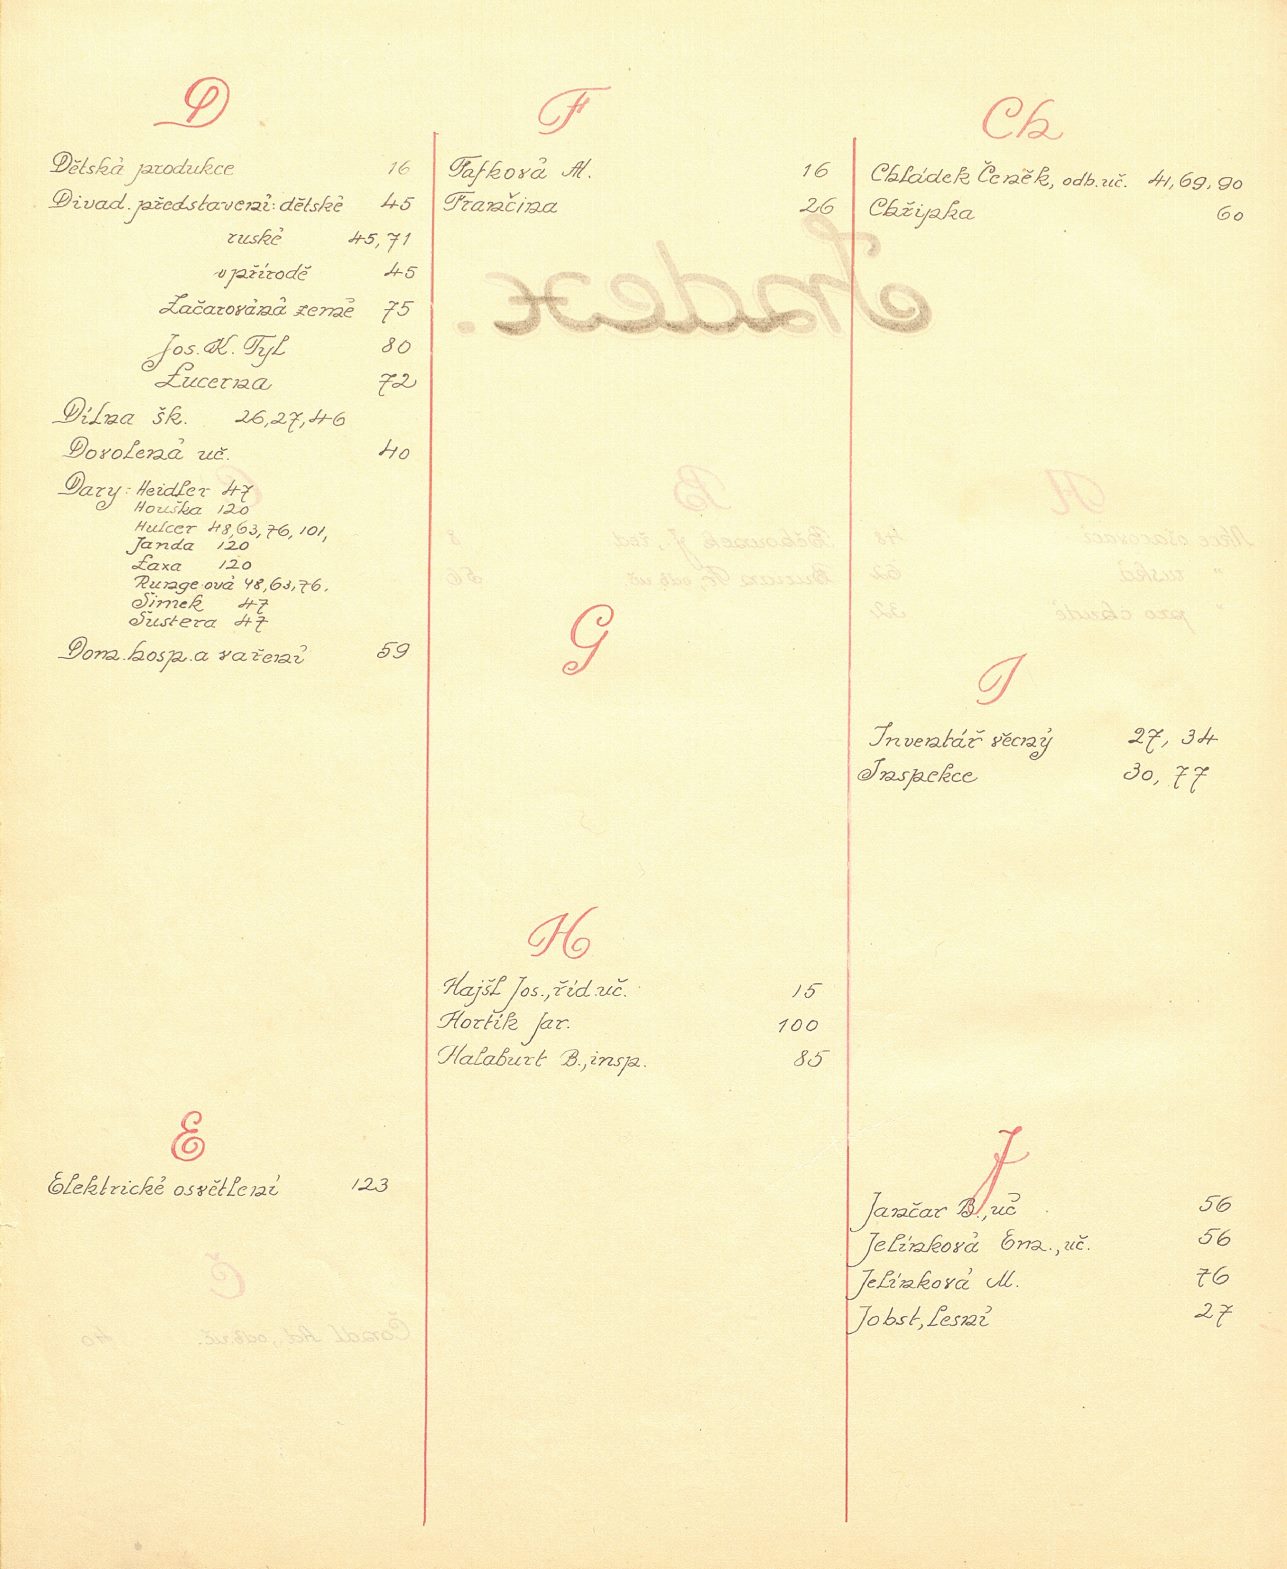 D
Dětská produkce 16
Divad. představení: dětské 45
ruské 45, 71
v přírodě 45
Začarovaná země 75
Jos. K. Tyl 80
Lucerna 72
Dílna šk. 26, 27, 46
Dovolená uč. 40
Dary: Heidler 47
Houška 120
Hulcer 48, 63, 76, 101,
Janda 120
Laxa 120
Runge ová 48, 63, 76.
Šimek 47
Šustera 47
Dom. hosp. a vaření 59
E
Elektrické osvětlení 123
F
Fafková M. 16
Frančina 26
G
H
Hajšl Jos., říd. uč. 15
Hortík Jar. 100
Halaburt B., insp. 85
Ch
Chládek Čeněk, odb. uč. 41, 69, 90
Chřipka 60
I
Inventář věcný 27, 34
Inspekce 30, 77
J
Jančar B., uč 56
Jelínková Em., uč. 56
Jelínková M. 76
Jobst, lesní 27